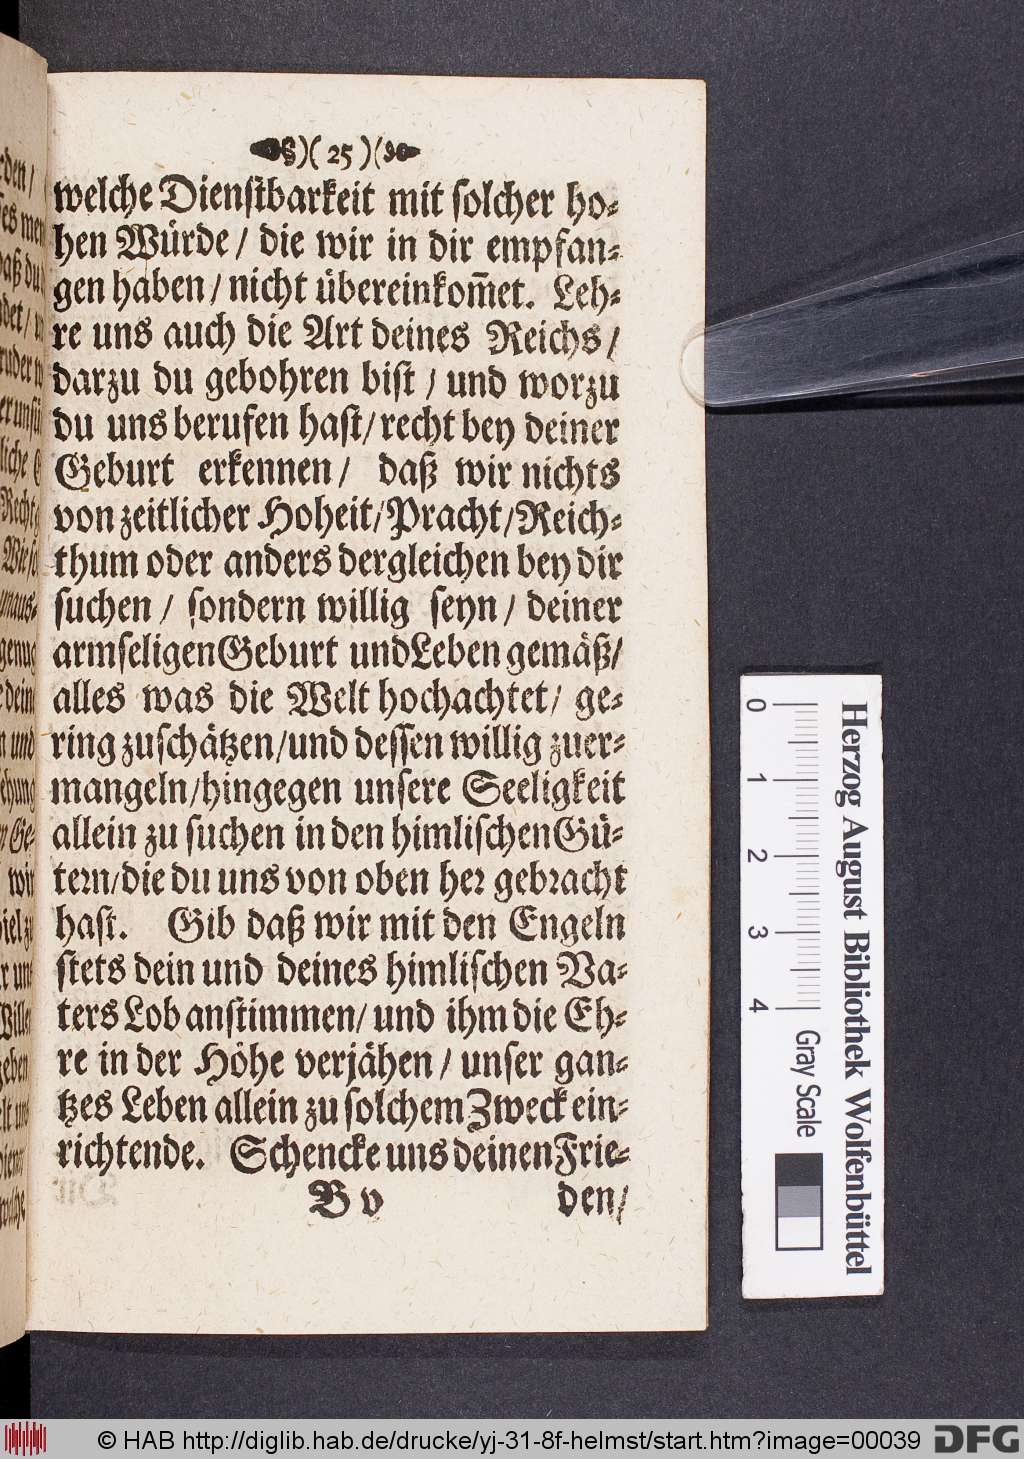 )( 25 )(
welche Dienstbarkeit mit solcher ho-
hen Würde / die wir in dir empfan-
gen haben / nicht übereinkom̃et. Leh-
re uns auch die Art deines Reichs /
darzu du gebohren bist / und worzu
du uns berufen hast / recht bey deiner
Geburt erkennen / daß wir nichts
von zeitlicher Hoheit / Pracht / Reich-
thum oder anders dergleichen bey dir
suchen / sondern willig seyn / deiner
armseligen Geburt und Leben gemäß /
alles was die Welt hochachtet / ge-
ring zuschätzen / und dessen willig zuer-
mangeln / hingegen unsere Seeligkeit
allein zu suchen in den himlischen Gü-
tern / die du uns von oben her gebracht
hast. Gib daß wir mit den Engeln
stets dein und deines himlischen Va-
ters Lob anstimmen / und ihm die Eh-
re in der Höhe verjähen / unser gan-
tzes Leben allein zu solchem Zweck ein-
richtende. Schencke uns deinen Frie-
B v den /
Herzog August Bibliothek Wolfenbüttel
0 1 2 3 4 Gray Scale
© HAB http://diglib.hab.de/drucke/yj-31-8f-helmst/start.htm?image=00039
DFG